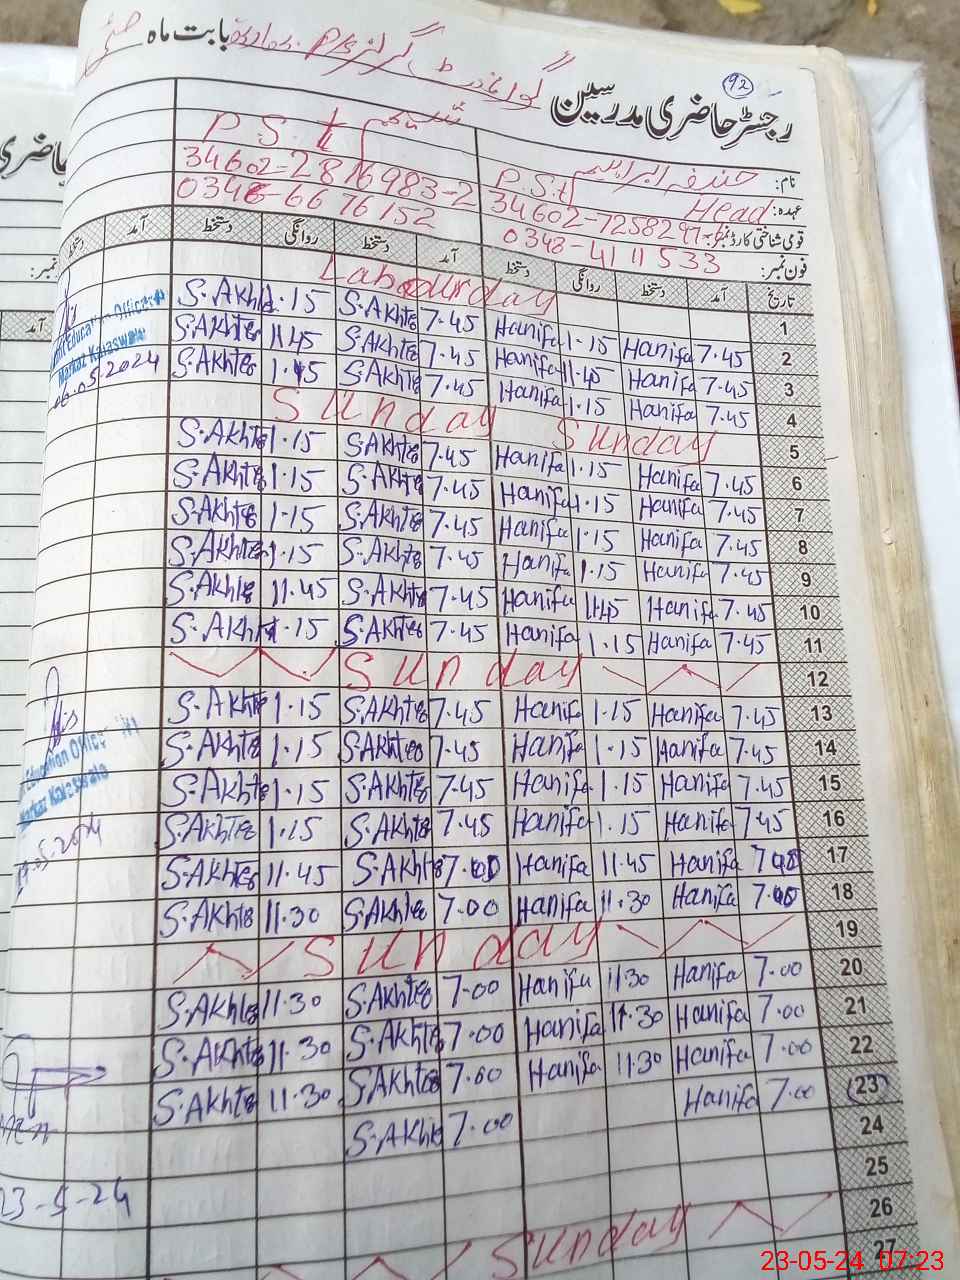 92
رجسٹر حاضری مدرسین
بابت ماہ مئی
نام:
عہدہ: P.S.t Head P.S.t
قومی شناختی کارڈ نمبر: 34602-7258297-6 34602-2816983-2
فون نمبر: 0348-4111533 0346-6676152
تاریخ آمد دستخط روانگی دستخط آمد دستخط روانگی دستخط آمد
1 Labour day
2 7.45 Hanifa 1.15 Hanifa 7.45 S.Akhte 1.15 S.Akhte
3 7.45 Hanifa 11.45 Hanifa 7.45 S.Akhte 11.45 S.Akhte
4 7.45 Hanifa 1.15 Hanifa 7.45 S.Akhte 1.15 S.Akhte
5 Sunday Sunday
6 7.45 Hanifa 1.15 Hanifa 7.45 S.Akhte 1.15 S.Akhte
7 7.45 Hanifa 1.15 Hanifa 7.45 S.Akhte 1.15 S.Akhte
8 7.45 Hanifa 1.15 Hanifa 7.45 S.Akhte 1.15 S.Akhte
9 7.45 Hanifa 1.15 Hanifa 7.45 S.Akhte 1.15 S.Akhte
10 7.45 Hanifa 11.45 Hanifa 7.45 S.Akhte 11.45 S.Akhte
11 7.45 Hanifa 1.15 Hanifa 7.45 S.Akhte 1.15 S.Akhte
12 Sunday
13 7.45 Hanifa 1.15 Hanifa 7.45 S.Akhte 1.15 S.Akhte
14 7.45 Hanifa 1.15 Hanifa 7.45 S.Akhte 1.15 S.Akhte
15 7.45 Hanifa 1.15 Hanifa 7.45 S.Akhte 1.15 S.Akhte
16 7.45 Hanifa 1.15 Hanifa 7.45 S.Akhte 1.15 S.Akhte
17 7.00 Hanifa 11.45 Hanifa 7.00 S.Akhte 11.45 S.Akhte
18 7.00 Hanifa 11.30 Hanifa 7.00 S.Akhte 11.30 S.Akhte
19 Sunday
20 7.00 Hanifa 11.30 Hanifa 7.00 S.Akhte 11.30 S.Akhte
21 7.00 Hanifa 11.30 Hanifa 7.00 S.Akhte 11.30 S.Akhte
22 7.00 Hanifa 11.30 Hanifa 7.00 S.Akhte 11.30 S.Akhte
23 7.00 Hanifa 7.00 S.Akhte
24
25
26 Sunday
27
Education Officer
Markaz Kalaswala
06.05.2024
Education Officer
Markaz Kalaswala
23-5-24
23-05-24 07:23